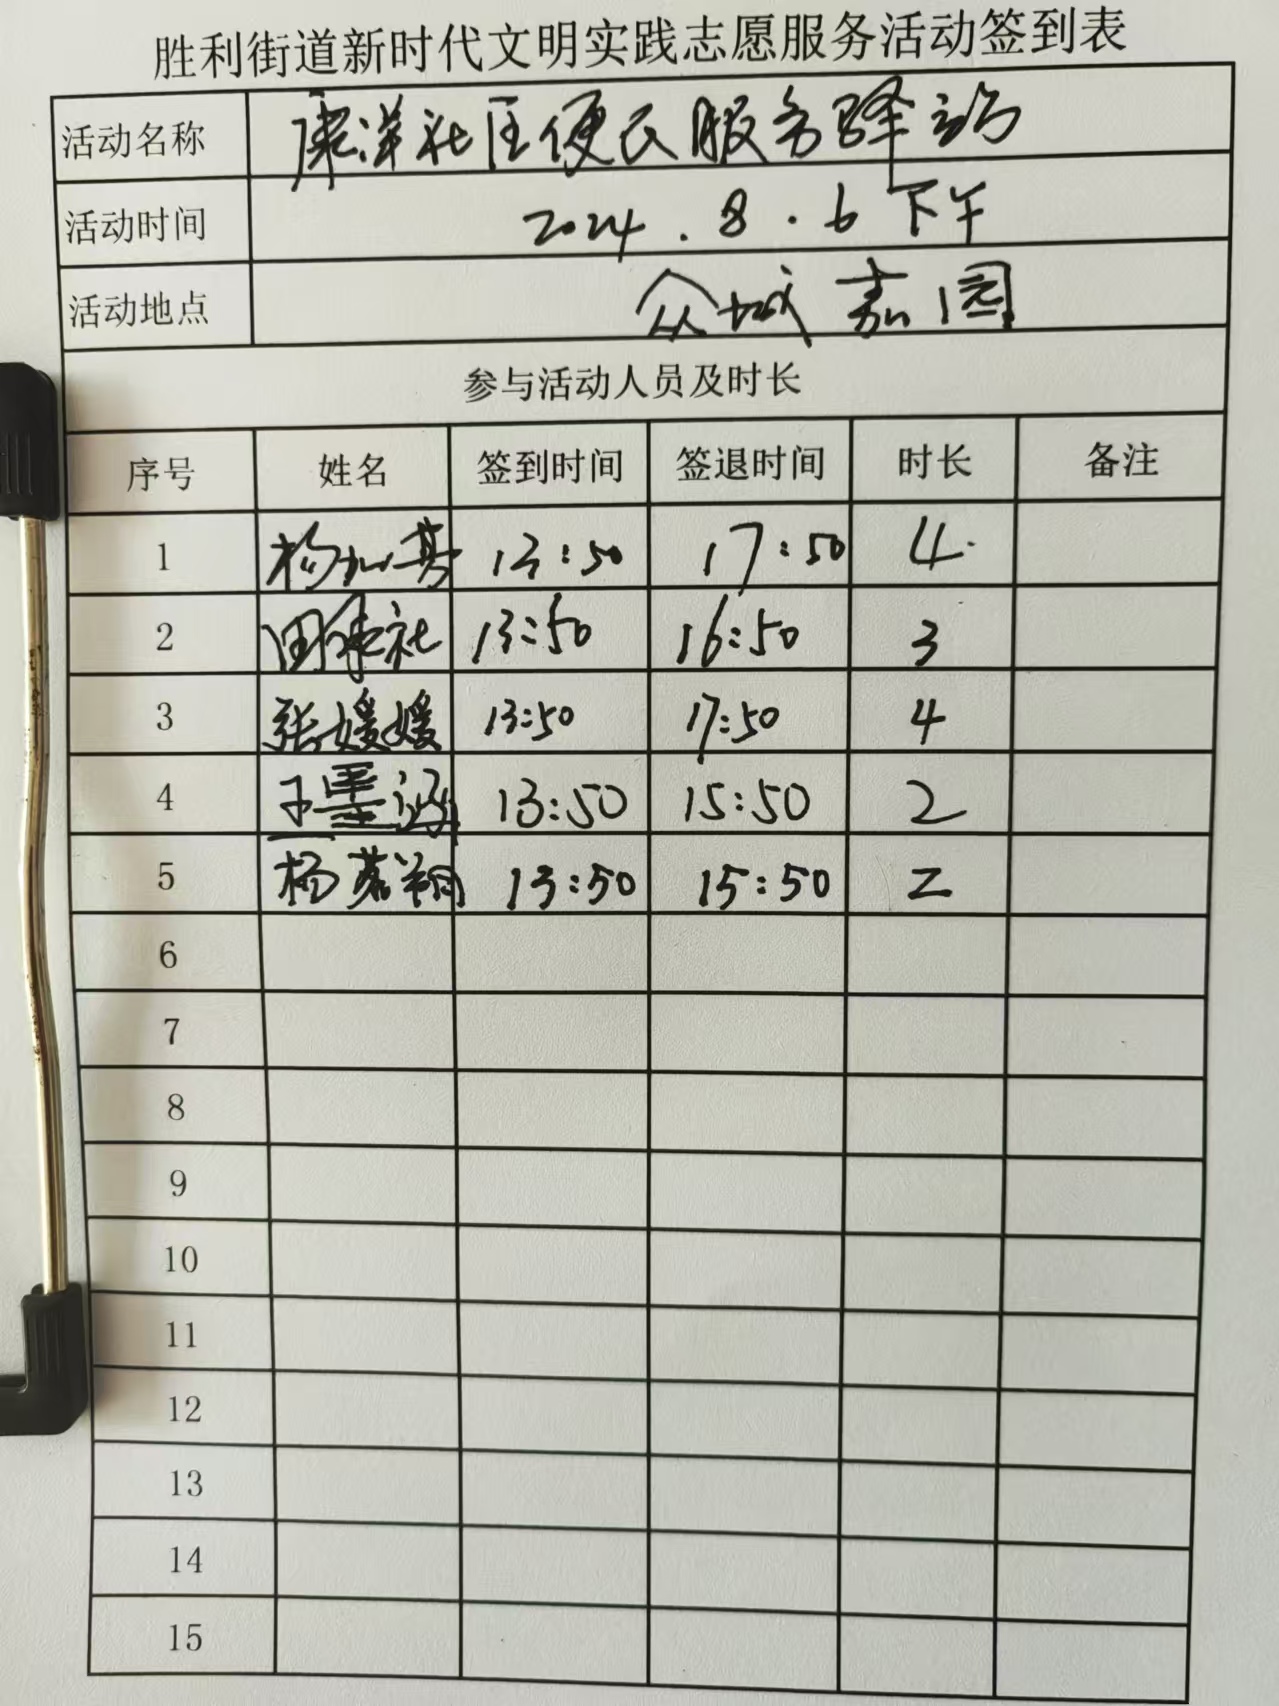 胜利街道新时代文明实践志愿服务活动签到表
活动名称 康洋社区便民服务驿站
活动时间 2024.8.6下午
活动地点 众城嘉园
参与活动人员及时长
序号 姓名 签到时间 签退时间 时长 备注
1 杨 13:50 17:50 4
2 田承社 13:50 16:50 3
3 张媛媛 13:50 17:50 4
4 王墨涵 13:50 15:50 2
5 杨茗翔 13:50 15:50 2
6
7
8
9
10
11
12
13
14
15